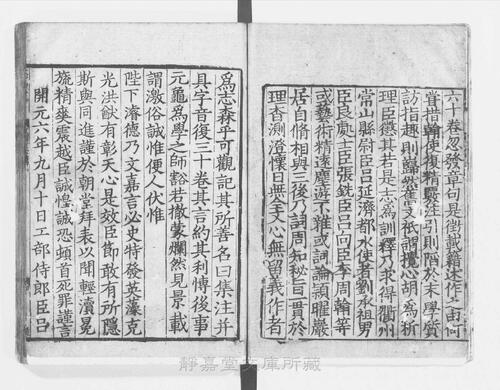 六十卷忽發章句是徵載籍述作之由何
嘗措翰使復精覈注引則陷於末學質
訪指趣則巋然舊文祇謂攪心胡爲析
理臣懲其若是志爲訓釋乃求得衢州
常山縣尉臣呂延濟都水使者劉承祖男
臣良處士臣張銑臣呂向臣李周翰等
或藝術精遠塵遊不雜或詞論穎曜巖
居自脩相與三復乃詞周知秘旨一貫於
理杳測澄懷目無全文心無留義作者
爲志森乎可觀記其所善名曰集注并
具字音復三十卷其言約其利博後事
元龜爲學之師豁若撤蒙爛然見景載
謂激俗誠惟便人伏惟
陛下濬德乃文嘉言必史特發英藻克
光洪猷有彰天心是效臣節敢有所隱
斯與同進謹於朝堂拜表以聞輕瀆冕
旒精爽震越臣誠惶誠恐頓首死罪謹言
開元六年九月十日工部侍郎臣呂
靜嘉堂文庫所藏